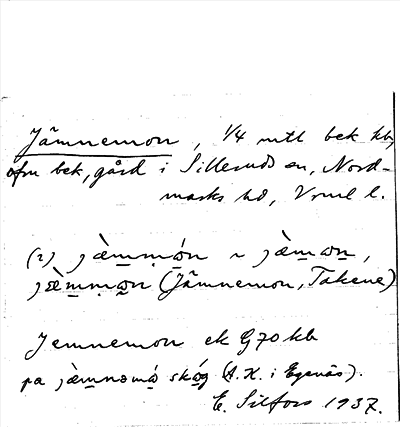 Jämnemon, 1/4 mtl bek kb,
ofm bek, gård i Silleruds sn, Nord-
marks hd, Vrml l.
(2) jæ̀m̠m̩ώ̠n ~ jæ̀m̠ωn̠,
jæ̀m̠m̩ω̠n (Jämnemon, Takene)
Jemnemon ek G70 kb
pa jæ̀m̠nəmώ̠ skώ̠g (A.K. i Egenäs).
E. Silfors 1937.